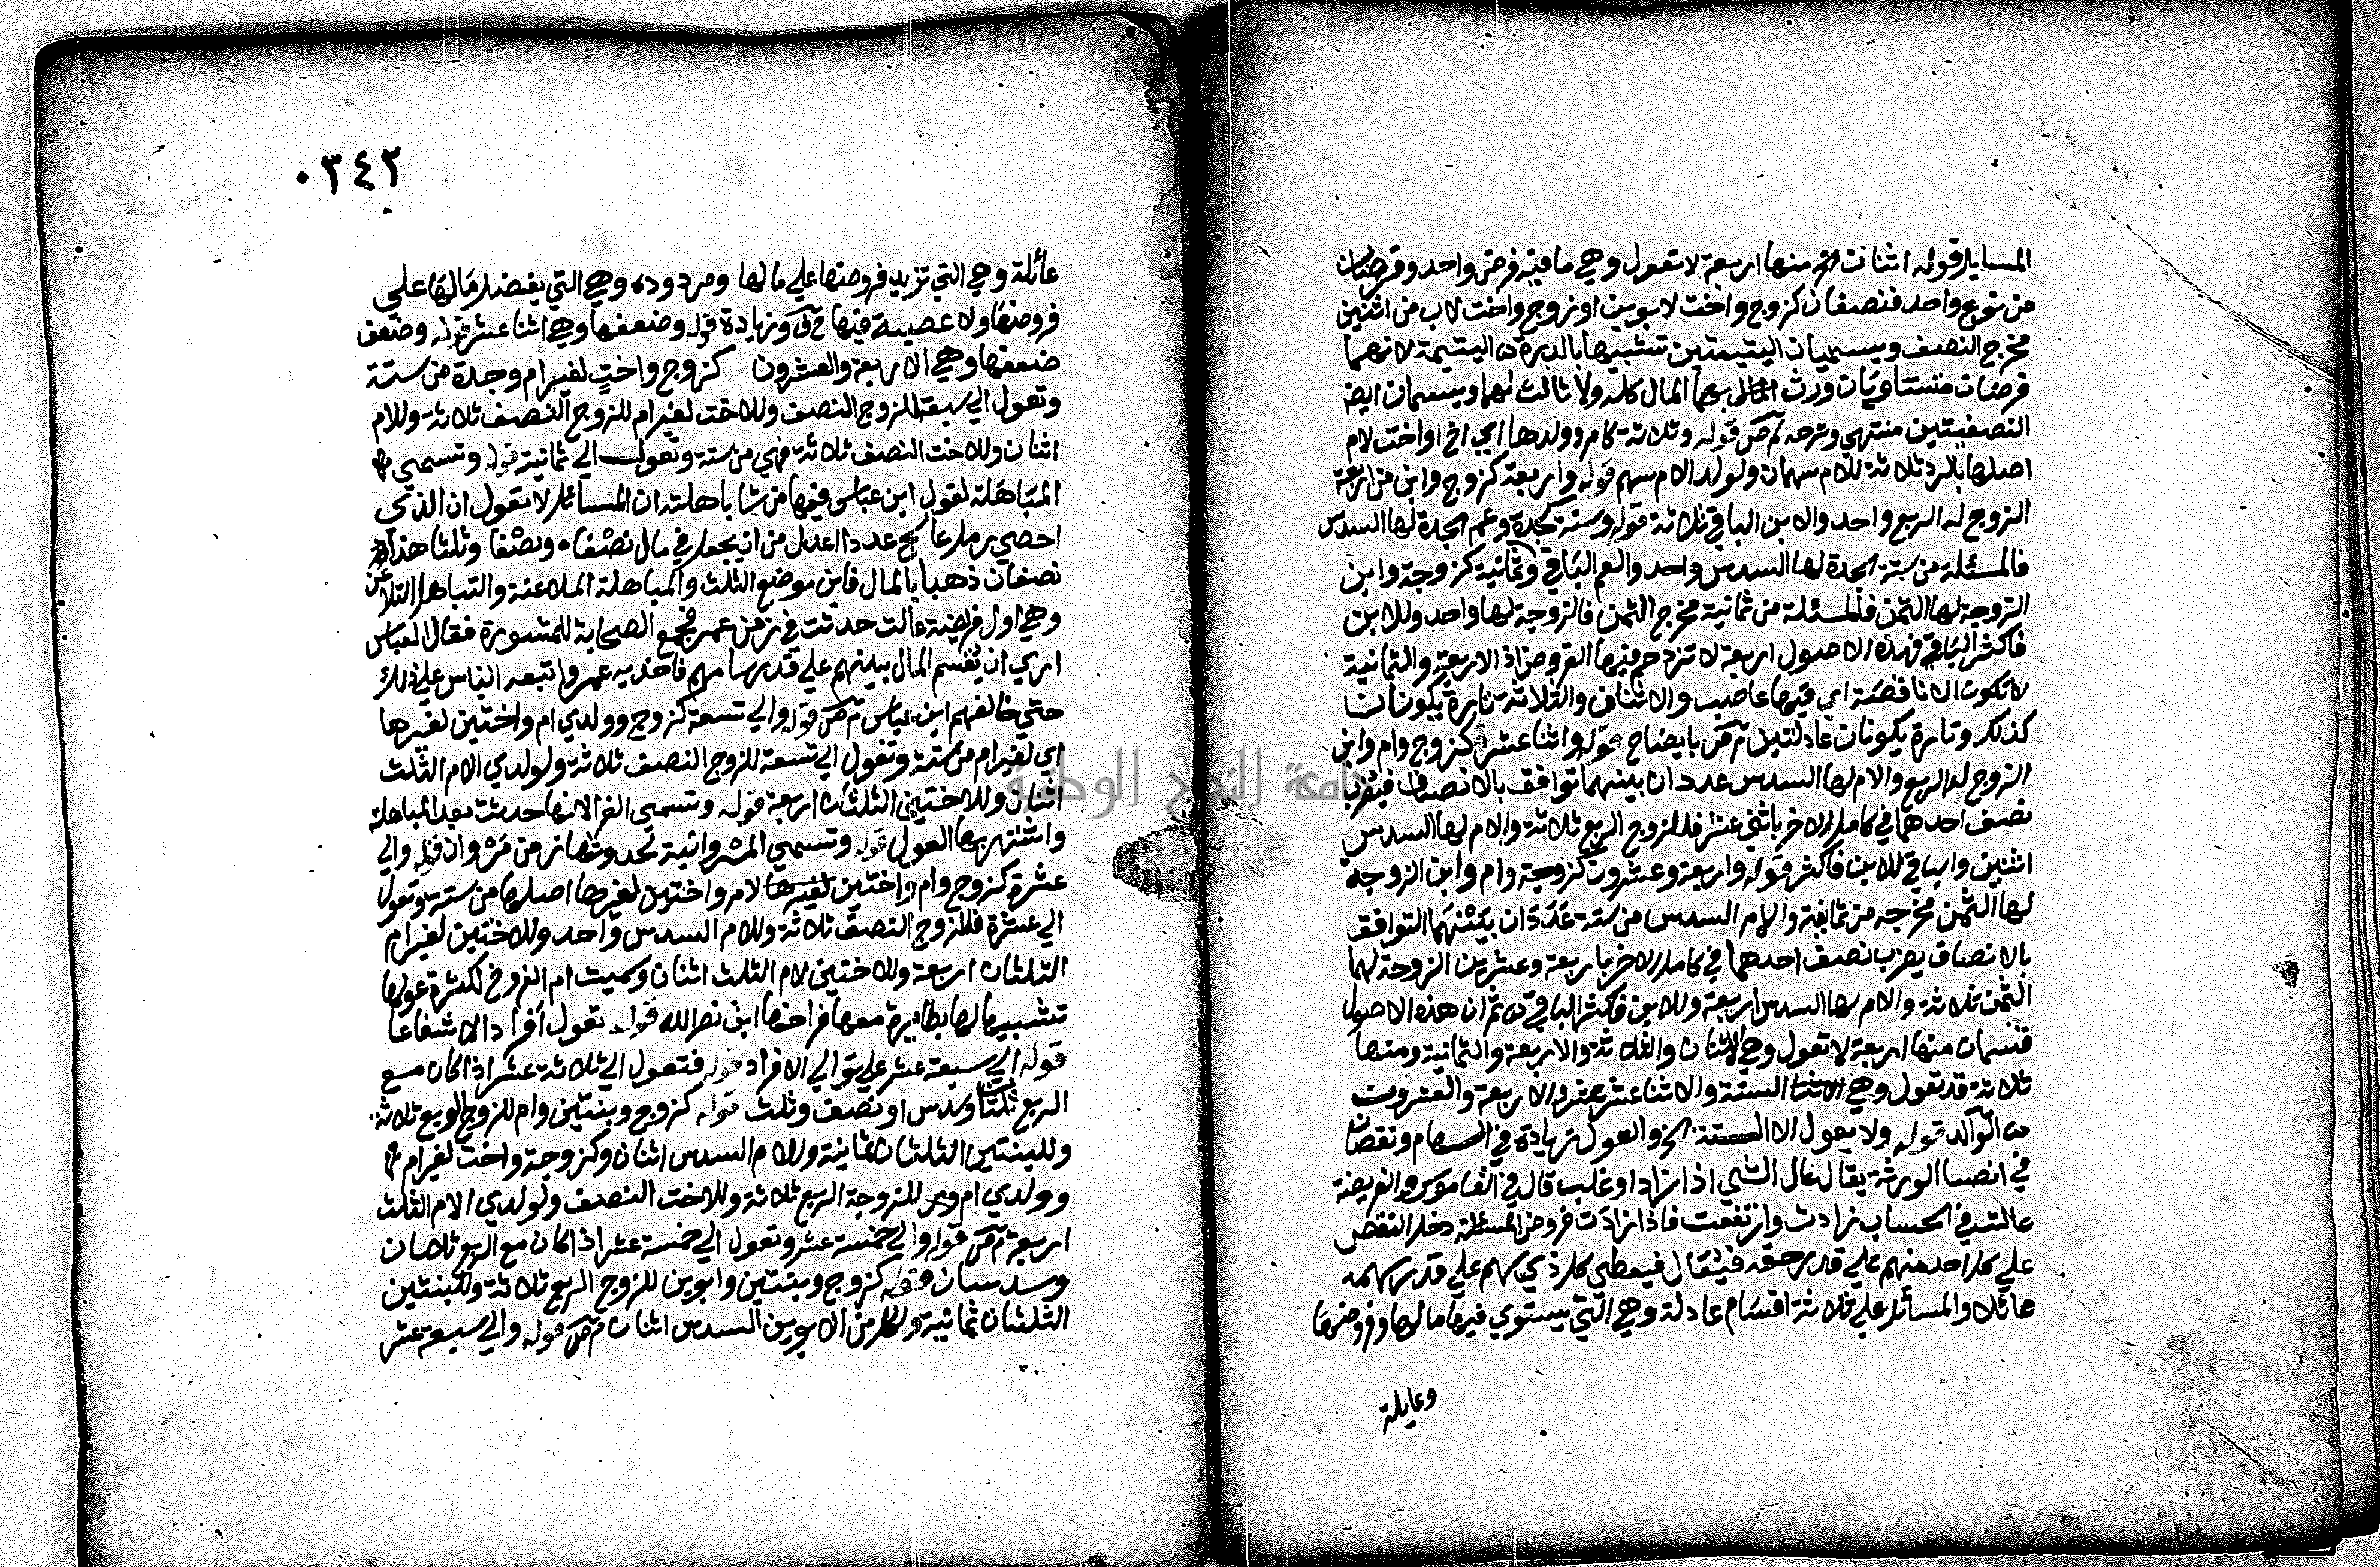 المسايل قوله اثنان الخ منها اربعة لا تعول وهي ما فيه فرض واحد وفرضان
من نوع واحد فنصفان كزوج واخت لابوين او زوج واخت لاب من اثنين
مخرج النصف ويسميان اليتيمتين تشبيها بالدرة اليتيمة لانهما
فرضان متساويان ورث بهما المال كله ولا ثالث لهما ويسميان ايضا
النصفيتين منتهي وشرحه م ص قوله وثلاثة كام وولدها اي اخ او اخت لام
اصلها بالرد ثلاثة للام سهمان ولولد الام سهم قوله واربعة كزوج وابن من اربعة
الزوج له الربع واحد والابن الباقي ثلاثة قوله وستة كجدة وعم الجدة لها السدس
فالمسئلة من ستة الجدة لها السدس واحد والعم الباقي وثمانية كزوجة وابن
الزوجة لها الثمن فالمسئلة من ثمانية مخرج الثمن فالزوجة لها واحد وللابن
فاكثر الباقي فهذه الاصول اربعة لا تزدحم فيها الفروض اذ الاربعة والثمانية
لا تكون الا ناقصة اي فيها عاصب والاثنان والثلاثة تارة يكونان
كذلك وتارة يكونان عادلتين م ص بايضاح قوله واثنا عشر كزوج وام وابن
الزوج له الربع والام لها السدس عددان بينهما توافق بالانصاف فيضرب
نصف احدهما في كامل الاخر باثني عشر فللزوج الربع ثلاثة والام لها السدس
اثنين والباقي للابن فاكثر قوله واربعة وعشرون كزوجة وام وابن الزوجة
لها الثمن مخرجه من ثمانية والام السدس من ستة عددان بينهما التوافق
بالانصاف يضرب نصف احدهما في كامل الاخر باربعة وعشرين الزوجة لها
الثمن ثلاثة والام لها السدس اربعة وللابن فاكثر الباقي ثم ان هذه الاصول
قسمان منها اربعة لا تعول وهي الاثنان والثلاثة والاربعة والثمانية ومنها
ثلاثة قد تعول وهي الستة والاثنا عشر والاربعة والعشرون
قوله ولا يعول الا الستة الخ والعول زيادة في السهام ونقصان
في انصبا الورثة يقال عال الشي اذا زاد او غلب قال في القاموس والفريضة
عالت في الحساب زادت وارتفعت فاذا زادت فروض المسئلة دخل النقص
علي كل احد منهم علي قدر حقه فيقال فيعطي كل ذي سهم علي قدر سهمه
عائلا والمسائل علي ثلاثة اقسام عادلة وهي التي يستوي فيها مالها وفروضها
وعايلة
٠٣٤٢
عائلة وهي التي تزيد فروضها علي مالها ومردودة وهي التي يفضل مالها علي
فروضها ولا عصبة فيها وزيادة قوله وضعفها وهي اثنا عشر قوله وضعف
ضعفها وهي الاربعة والعشرون كزوج واخت لغير ام وجدة من ستة
وتعول الي سبعة للزوج النصف وللاخت لغير ام للزوج النصف ثلاثة وللام
اثنان وللاخت النصف ثلاثة فهي من ستة وتعول الي ثمانية قوله وتسمي
المباهلة لقول ابن عباس فيها من شا باهلته ان المسائل لا تعول ان الذي
احصي رمل عالج عددا اعدل من ان يجعل في مال نصفا ونصفا وثلثا هذان
نصفان ذهبا بالمال فاين موضع الثلث والمباهلة الملاعنة والتباهل التلاعن
وهي اول فريضة عالت حدثت في زمن عمر فجمع الصحابة للمشورة فقال العباس
اري ان يقسم المال بينهم علي قدر سهامهم فاخذ به عمر واتبعه الناس علي ذلك
حتي خالفهم ابن عباس م ص قوله والي تسعة كزوج وولدي ام واختين لغيرها
اي لغير ام من ستة وتعول الي تسعة للزوج النصف ثلاثة ولولدي الام الثلث
اثنان وللاختين الثلثان اربعة قوله وتسمي الغرا لانها حدثت بعد المباهلة
واشتهر بها العول قوله وتسمي المروانية لحدوثها زمن مروان قوله والي
عشرة كزوج وام واختين لام واختين لغيرها اصلها من ستة وتعول
الي عشرة فللزوج النصف ثلاثة وللام السدس واحد وللاختين لغير ام
الثلثان اربعة وللاختين لام الثلث اثنان وسميت ام الفروخ لكثرة عولها
تشبيها لها بطايرة معها فراخها ابن نصر الله قوله تعول افرادا لا شفعا
قوله الي سبعة عشر علي توالي الافراد قوله فتعول الي ثلاثة عشر اذا كان مع
الربع ثلثان وسدس او نصف وثلث قوله كزوج وبنتين وام للزوج الربع ثلاثة
وللبنتين الثلثان ثمانية وللام السدس اثنان وكزوجة واخت لغير ام
وولدي ام للزوجة الربع ثلاثة وللاخت النصف ولولدي الام الثلث
اربعة م ص قوله والي خمسة عشر وتعول الي خمسة عشر اذا كان مع الربع ثلثان
وسدسان قوله كزوج وبنتين وابوين للزوج الربع ثلاثة وللبنتين
الثلثان ثمانية ولكل من الابوين السدس اثنان م ص قوله والي سبعة عشر
جامعة النجاح الوطنية